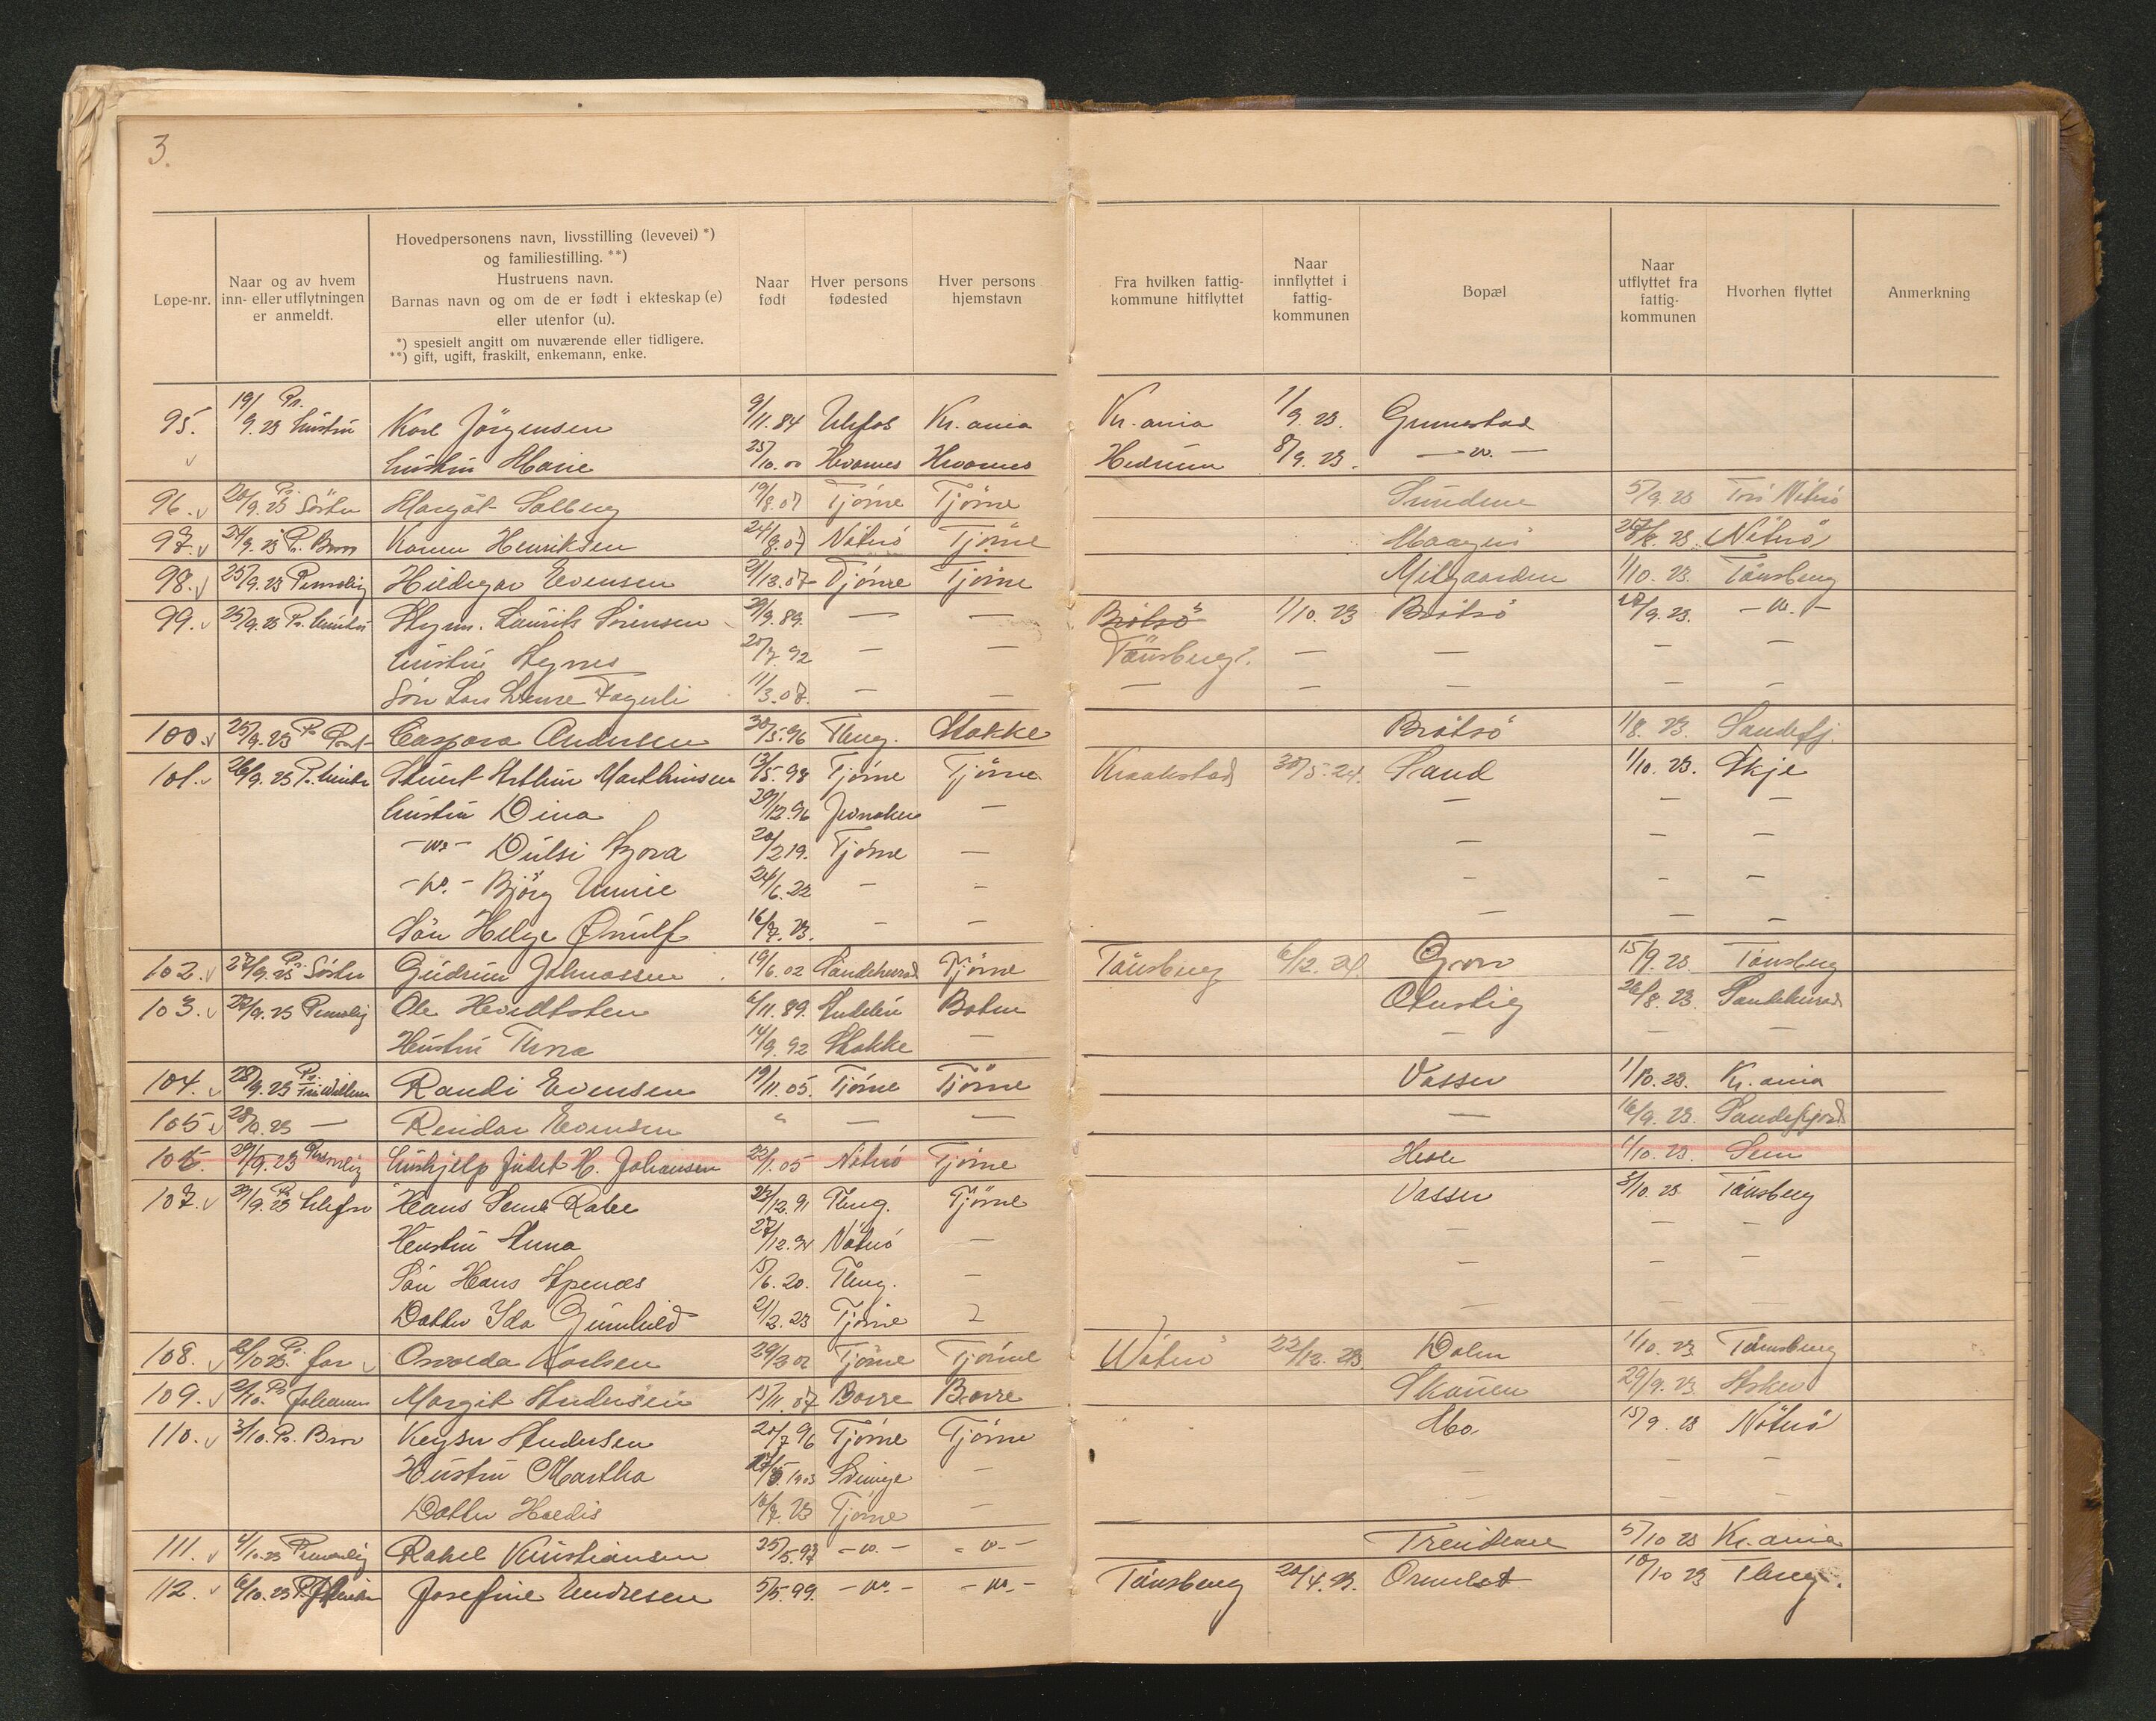 3.
Løpe-nr.
Naar og av hvem
inn- eller utflytningen
er anmeldt.
Hovedpersonens navn, livsstilling (levevei) *)
og familiestilling. **)
Hustruens navn.
Barnas navn og om de er født i ekteskap (e)
eller utenfor (u).
*) spesielt angitt om nuværende eller tidligere.
**) gift, ugift, fraskilt, enkemann, enke.
Naar
født
Hver persons
fødested
Hver persons
hjemstavn
Fra hvilken fattig-
kommune hitflyttet
Naar
innflyttet i
fattig-
kommunen
Bopæl
Naar
utflyttet fra
fattig-
kommunen
Hvorhen flyttet
Anmerkning
95. 19/9.23 Pr. hustru Karl Jörgensen 9/11.84 Ulefos Kr.ania Kr.ania 1/9.23. Grimestad
hustru Marie 25/10.00 Hvarnes Hvarnes Hedrum 8/9.23. -"-
96. 20/9.23 Pr. Söster Margot Solberg 19/8.07 Tjöme Tjöme Sundene 5/9.23 Nötrö
97. 24/9.23 P. Bror Karen Henriksen 24/8.07 Nötrö Tjöme 23 Nötrö
98. 25/9.23 Personlig Hildegar Evensen Tjöme Tjöme Midgaarden 1/10.23. Tönsberg
99. 25/9.23 Pr. hustru Laurits Sörensen 9.89. — — Brötsö 1/10.23 Brötsö 9.23. -"-
hustru Agnes 20/7.92 — — Tönsberg?. — — — —
Sön Fagerli 11/3.07. — — — — — — —
100. 25/9.23 Pr. Post Caspara Andersen 30/5.96 Tbrg. Stokke Brötsö 1/8.23. Sandefj.
101. 26/9.23 P. hustru Arthur Marthinsen 5.98 Tjöme Tjöme Kraakstad 30/5.24. Sand 1/10.23. Skje
hustru Dina 29/12.96 Jevnaker — — — —
-"- Dulsi 20/2 19. Tjöme — — — —
-"- Björg Unnie 24/6.22 — — — — —
Sön Helge Örnulf 16/7.23. — — — — —
102. 27/9.23 Pr. Söster Gudrun Johnassen 19/6.02 Sandeherred Tjöme Tönsberg 6/12.24. Grov 15/9.23. Tönsberg
103. 27/9.23 Personlig Ole Hevidtsten 6/11.89. Andebu Botne 26/8.23. Sandeherred
Hustru Anna 14/9.92 Stokke — — — —
104. 28/9.23 Pr. Randi Evensen 19/11.05. Tjöme Tjöme Vasser 1/10.23. Kr.ania
105 28/9.23 — Reidar Evensen " — — — 16/9.23. Sandefjord
106. 29/9.23 Personlig hushjelp Judit H. Johansen 22/1.05 Nötrö Tjöme Hesle 1/10.23. Sem
107. 9.23 Pr. telefon Hans Rabe 23/12.91 Tbrg. Tjöme Vasser 3/10.23 Tönsberg
Hustru Anna 27/12.94 Nötrö — — — —
Sön Hans Apenes 15/6.20. Tbrg. — — — —
Datter Ida Gunhild 2/2.23 Tjöme — — —
108. 6/10 23. Pr. far Osvalda Karlsen 29/3 02 Tjöme Tjöme Nötrö 22/12.23 Dalen 1/10.23 Tönsberg
109. 2/10. Pr. Johansen Margit Andersen 15/11.07 Borre Borre Skauen 29/9.23. Asker
110. 3/10. Pr. Bror Keyser Andersen 20/7 96 Tjöme Tjöme Mo 15/9.23 Nötrö
Hustru Martha 1903 — — — —
Datter Hredis 10/7.23 Tjöme — — — —
111. 4/10.23 Personlig Rakel Kristiansen 25/5.97 -"- -"- Treidene 5/10 23 Kr.ania
112. 6/10.23 Josefine Andresen 5/5.99. -"- -"- Tönsberg 20/4.23. Ormelet 10/10 23 Tbrg.